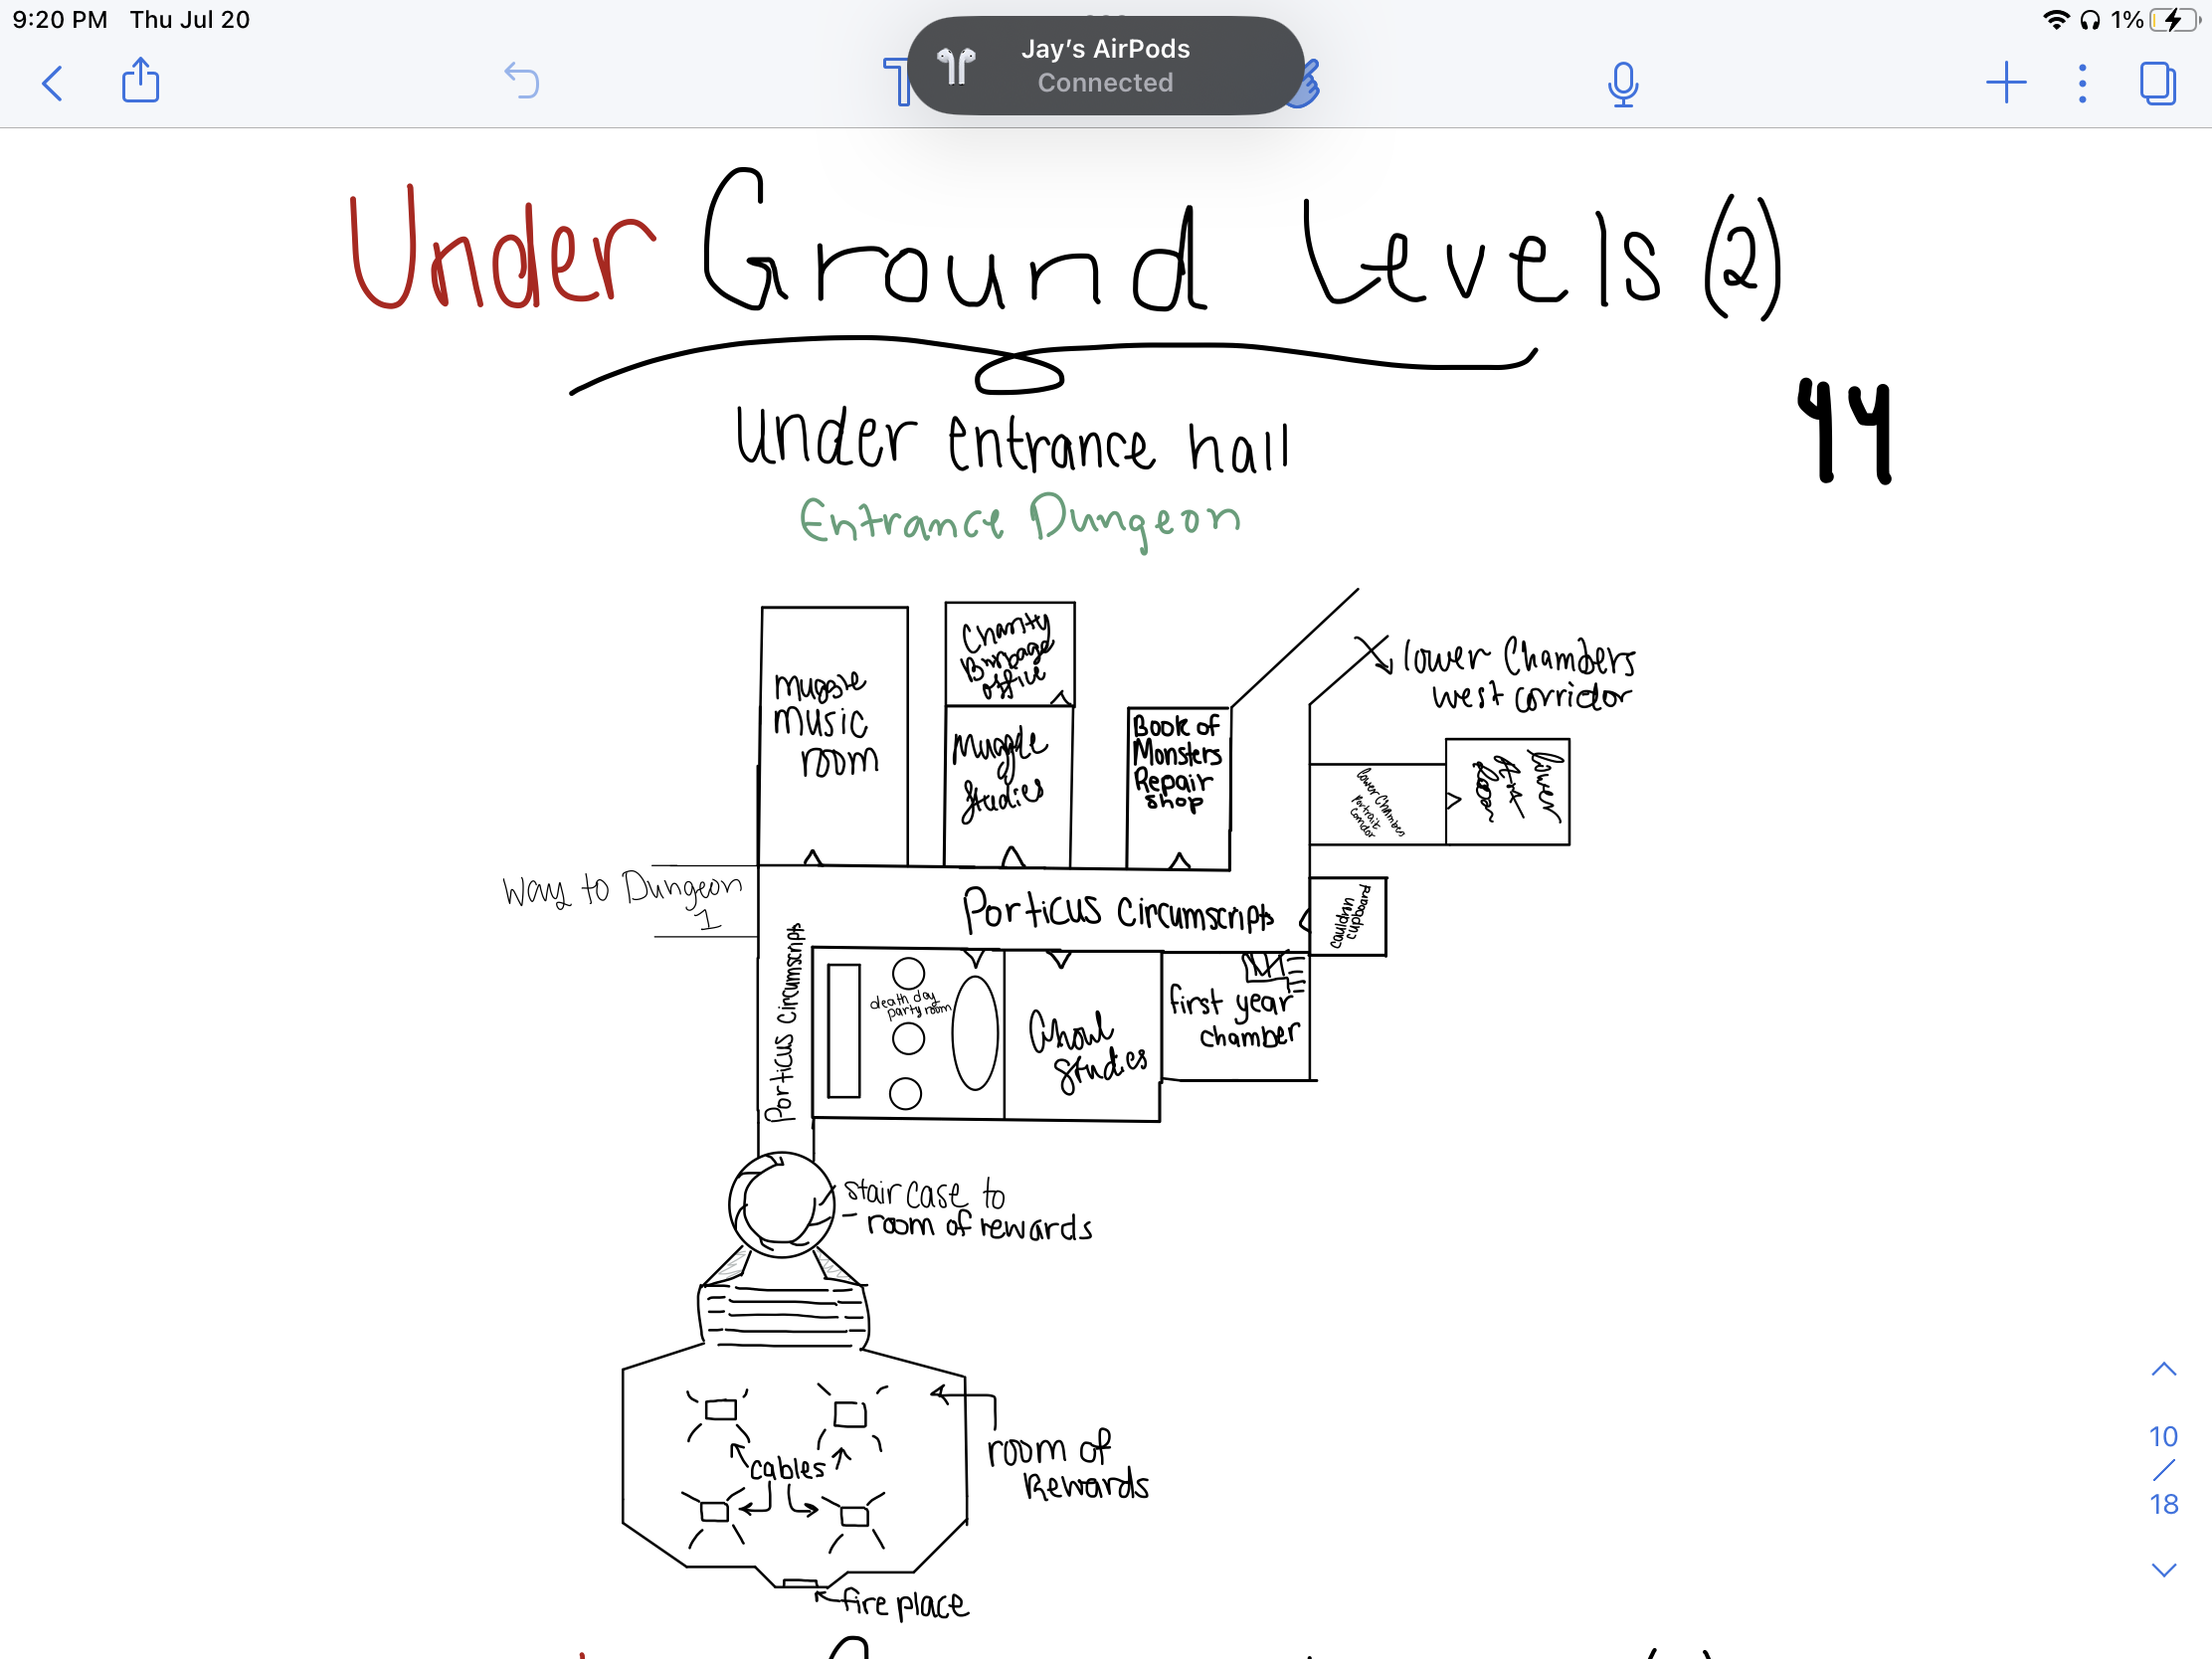 9:20 PM Thu Jul 20
1%
Jay's AirPods
Connected
Under Ground Levels (2)
44
Under entrance hall
Entrance Dungeon
Charity
Burbage
office
muggle
music
room
Muggle
Studies
Book of
Monsters
Repair
shop
lower Chambers
west corridor
lower Chamber
Portrait
corridor
lower
Way to Dungeon
1
Porticus Circumscripts
cauldrin
cupboard
Porticus Circumscripts
death day
party room
Ghoul
Studies
first year
chamber
staircase to
room of rewards
cables
room of
Rewards
fire place
10
/
18